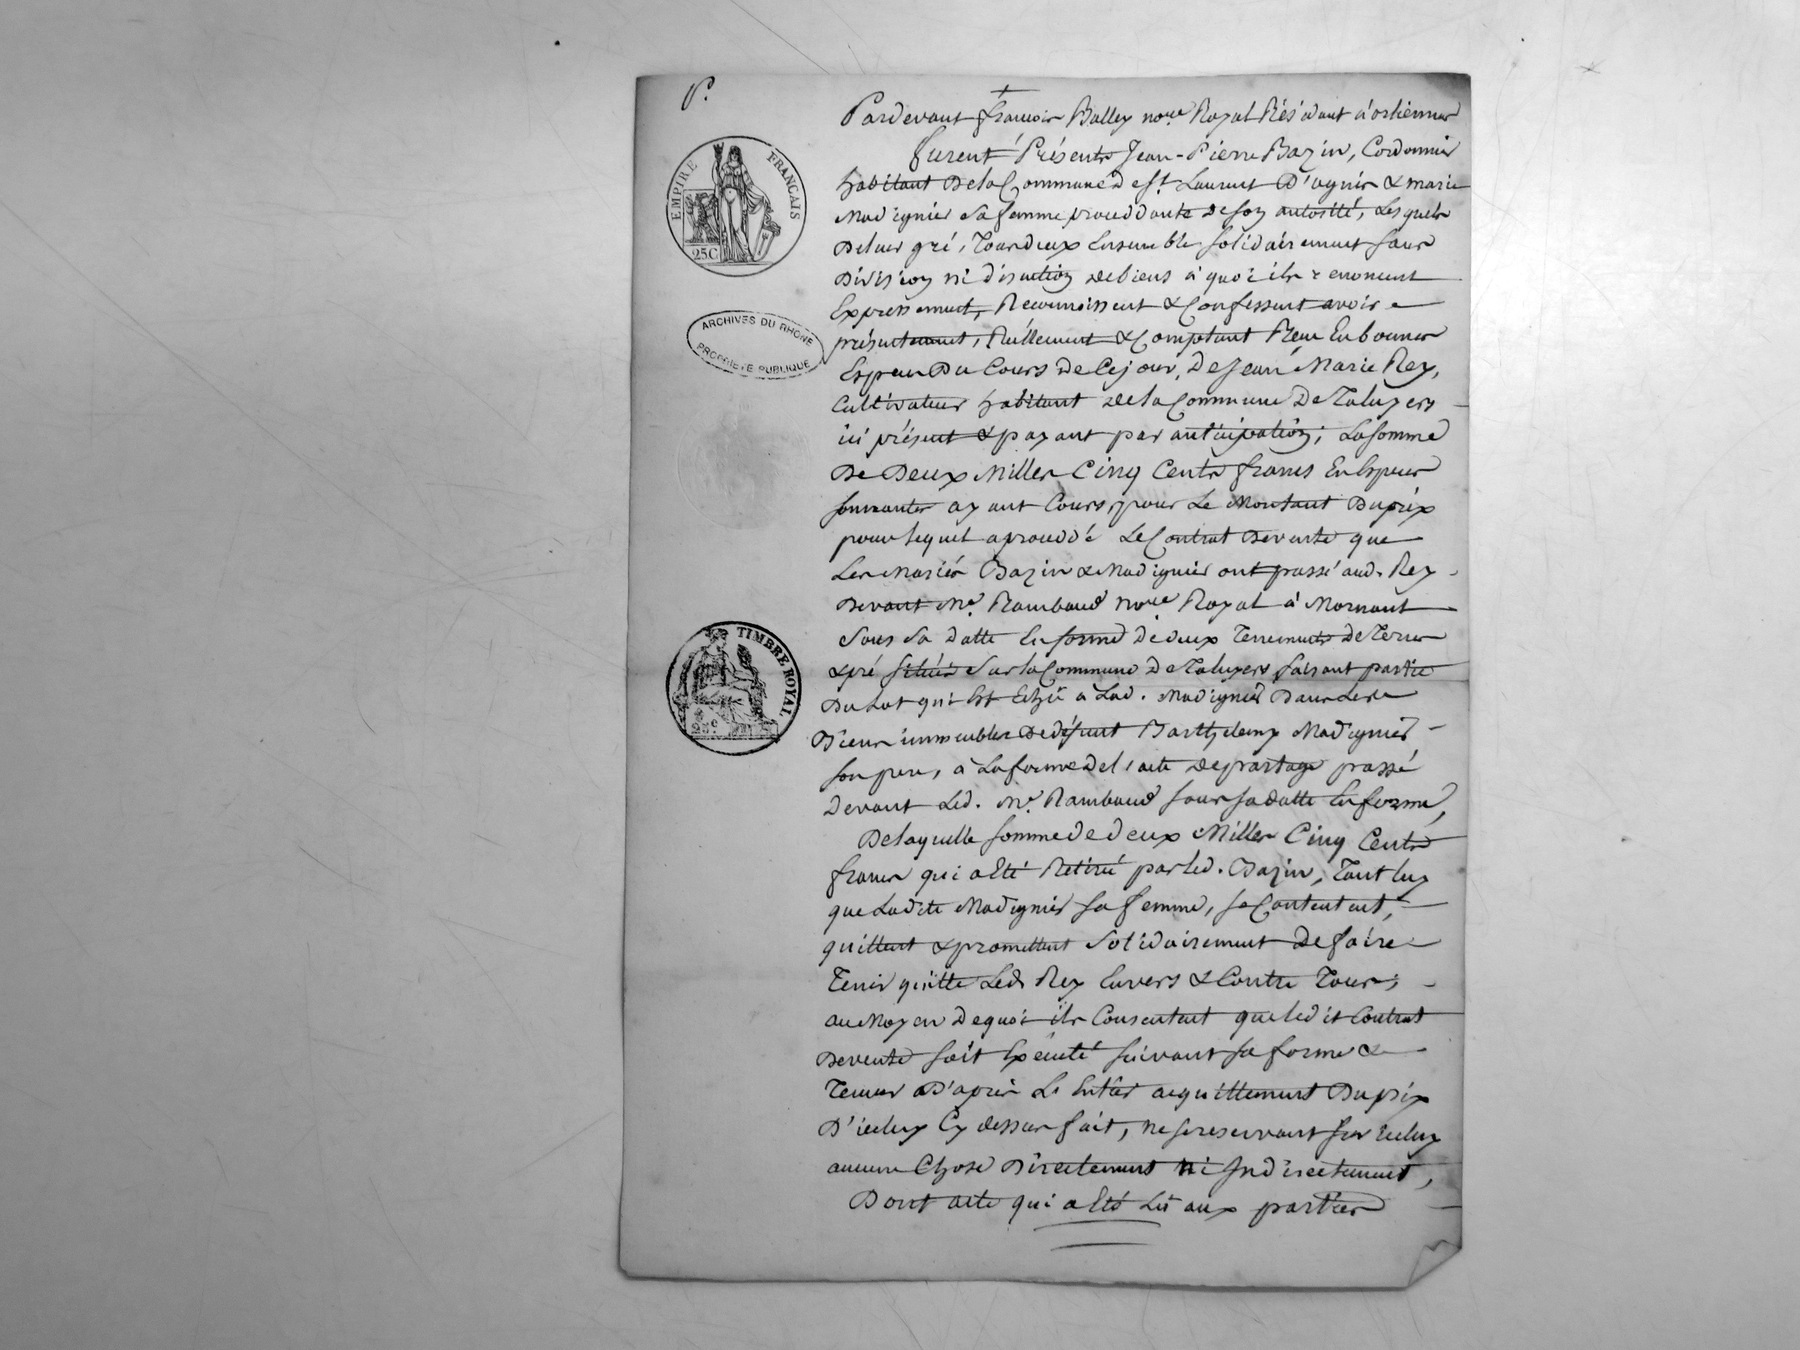 P.
EMPIRE FRANÇAIS
25C
ARCHIVES DU RHONE
PROPRIETE PUBLIQUE
TIMBRE ROYAL
25c
Pardevant françois Balley nore Royal Résidant à
furent Présents Jean-Pierre Bazin, Cordonnier
habitant De la Commune de St. Laurent D'agnis & marie
Madignier sa femme proceddante de son autosité, Lesquels
De leur gré, Tous deux Ensemble solidairement sans
Division ni discution de biens à quoi ils renoncent
Expressement, Reconnoissent & Confessent avoir
présentement, Réellement & Comptant Reçu En bonnes
Especes Du Cours de Ce jour, De Jean Marie Rey,
Cultivateur habitant de la Commune De Taluyers
ici présent & payant par anticipation; La somme
De Deux Milles Cinq Cents francs En Especes
sonnantes ayant Cours, pour Le Montant Du prix
pour lequel a proceddé Le Contrat De vente que
Les Mariés Bazin & Madignier ont passé aud. Rey
Devant Me. Rambaud nore Royal à Mornant
Sous Sa datte En forme de deux Tenements de Terre
& pré Situés Sur la Commune De Taluyers faisant partie
Du Lot qui Est Echû à Lad. Madignier Dans Les
Biens immeubles De défunt Barthelemy Madignier
son pere, à La forme de l'acte de partage passé
Devant Led. Me. Rambaud sous sa datte En forme,
De laquelle somme de deux Milles Cinq Cents
francs qui a Eté Retiré par led. Bazin, Tant luy
que Ladite Madignier sa femme, se Contentent,
quittent & promettent Solidairement De faire
Tenir quitte Led. Rey Envers & Contre Tous;
au Moyen De quoi ils Consentent que ledit Contrat
De vente soit Exécuté suivant sa forme &
Teneur D'après Le Entier acquittement Du prix
D'iceluy Cy dessus fait, ne se reservant sur iceluy
aucune Chose Directement ni Indirectement,
Dont acte qui a Eté Lû aux parties